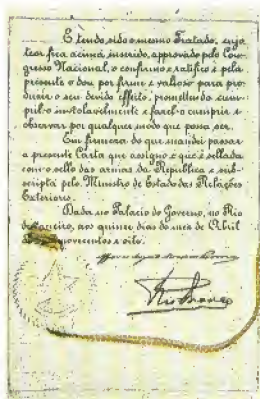 E tendo sido o mesmo Tratado, cujo
teor fica acima inserido, approvado pelo Con-
gresso Nacional, o confirmo e ratifico e, pela
presente o dou por firme e valioso para pro-
duzir o seu devido effeito, promettendo cum-
pril-o inviolavelmente e fazel-o cumprir e
observar por qualquer modo que possa ser.
Em firmeza do que mandei passar
a presente Carta que assigno e que é sellada
com o sello das armas da Republica e sub-
scripta pelo Ministro de Estado das Relações
Exteriores.
Dada no Palacio do Governo, no Rio
de Janeiro, aos quinze dias do mez de Abril
novecentos e oito.
Rio Branco